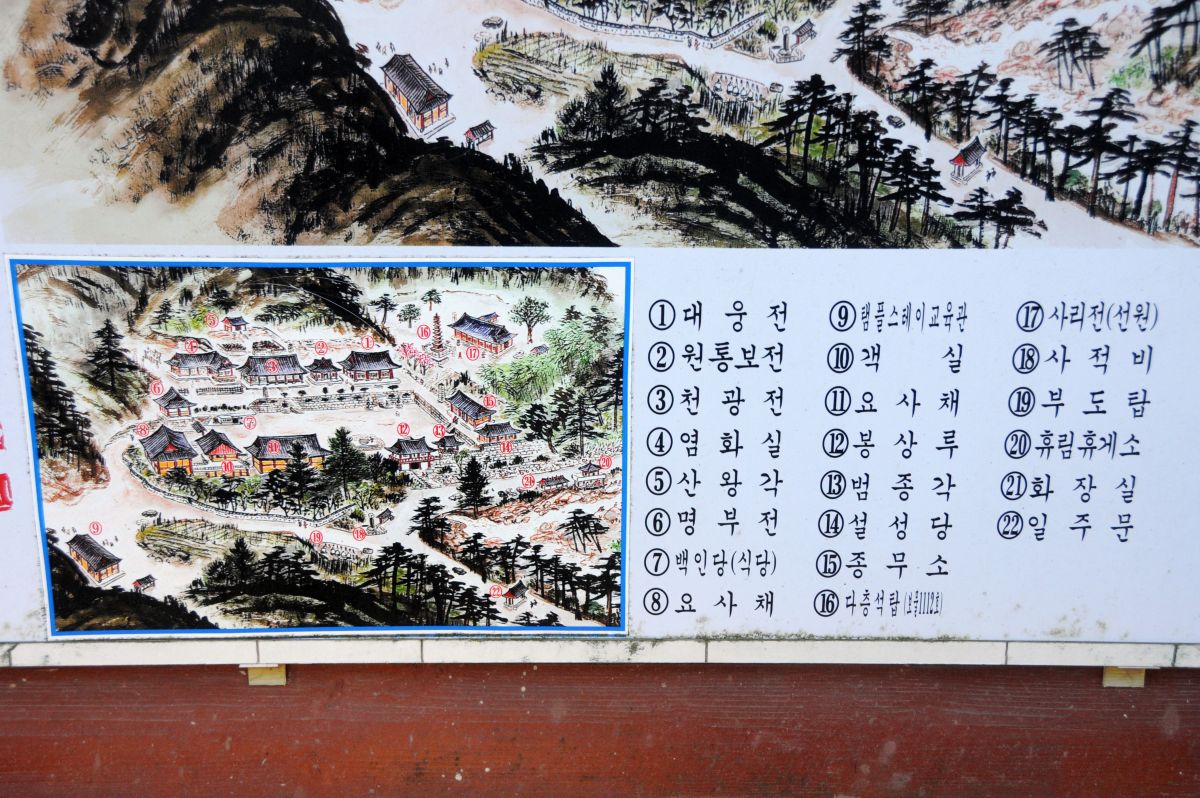 ①대 웅 전
②원통보전
③천 광 전
④염 화 실
⑤산 왕 각
⑥명 부 전
⑦백인당(식당)
⑧요 사 채
⑨탬플스테이교육관
⑩객 실
⑪요 사 채
⑫봉 상 루
⑬범 종 각
⑭설 성 당
⑮종 무 소
⑯다층석탑(보물1112호)
⑰사리전(선원)
⑱사 적 비
⑲부 도 탑
⑳휴림휴게소
㉑화 장 실
㉒일 주 문